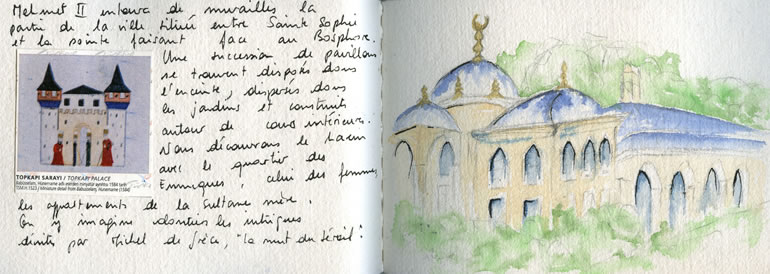 Mehmet II entoura de murailles la
partie de la ville située entre Sainte Sophie
et la pointe faisant face au Bosphore.
Une succession de pavillons
se trouvent disposés dans
l'enceinte, dispersés dans
les jardins et construits
autour de cours intérieures.
Nous découvrons le harem
avec le quartier des
Eunuques, celui des femmes
les appartements de la Sultane mère.
On y imagine volontiers les intrigues
décrites par Michel de Grèce, "la nuit du sérail".
TOPKAPI SARAYI / TOPKAPI PALACE